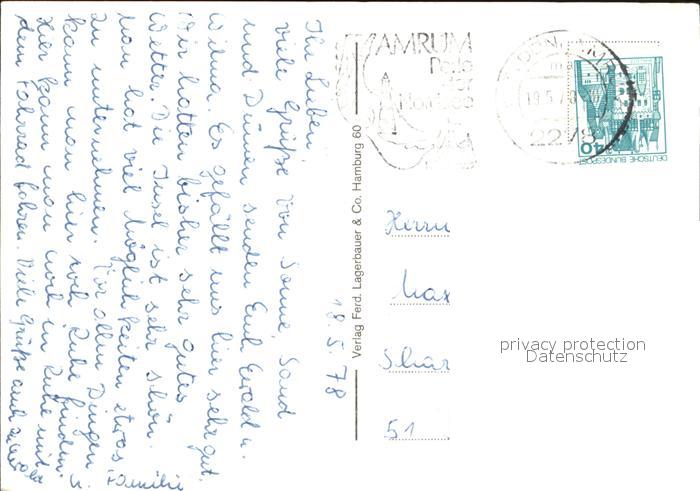 18.5.78
Ihr Lieben,
viele Grüße von Sonne, Sand
und Dünen senden Euch Ewald u.
Wilma. Es gefällt uns hier sehr gut.
Wir hatten bisher sehr gutes
Wetter. Die Insel ist sehr schön.
Man hat viel Möglichkeiten etwas
zu unternehmen. Vor allen Dingen
kann man hier noch Ruhe finden.
Hier kann man noch in Ruhe mit
dem Fahrrad fahren. Viele Grüße auch
u. Familie
Verlag Ferd. Lagerbauer & Co. Hamburg 60
AMRUM
Perle
der
Nordsee
19.5.78
2278
40
DEUTSCHE BUNDESPOST
Herrn
Max
Schär
51
privacy protection
Datenschutz